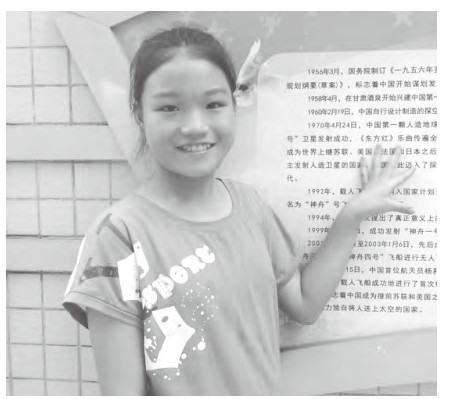 1956年3月，国务院制订《一九五六年至
规划纲要（草案）》，标志着中国开始谋划发
1958年4月，在甘肃酒泉开始兴建中国第一
1960年2月19日，中国自行设计制造的探空
1970年4月24日，中国第一颗人造地球
号”卫星发射成功，《东方红》乐曲传遍全
成为世界上继苏联、美国、法国和日本之后
主发射人造卫星的国家 此迈入了探
代。
1992年，载人飞 入国家计划
名为“神舟”号飞
1994年， 次提出了真正意义上的
1999年 日，成功发射“神舟一号
至2003年1月6日，先后
神舟四号”飞船进行无人
15日，中国首位航天员杨利
载人飞船成功地进行了首次
志着中国成为继前苏联和美国之
力独自将人送上太空的国家。
SPORT